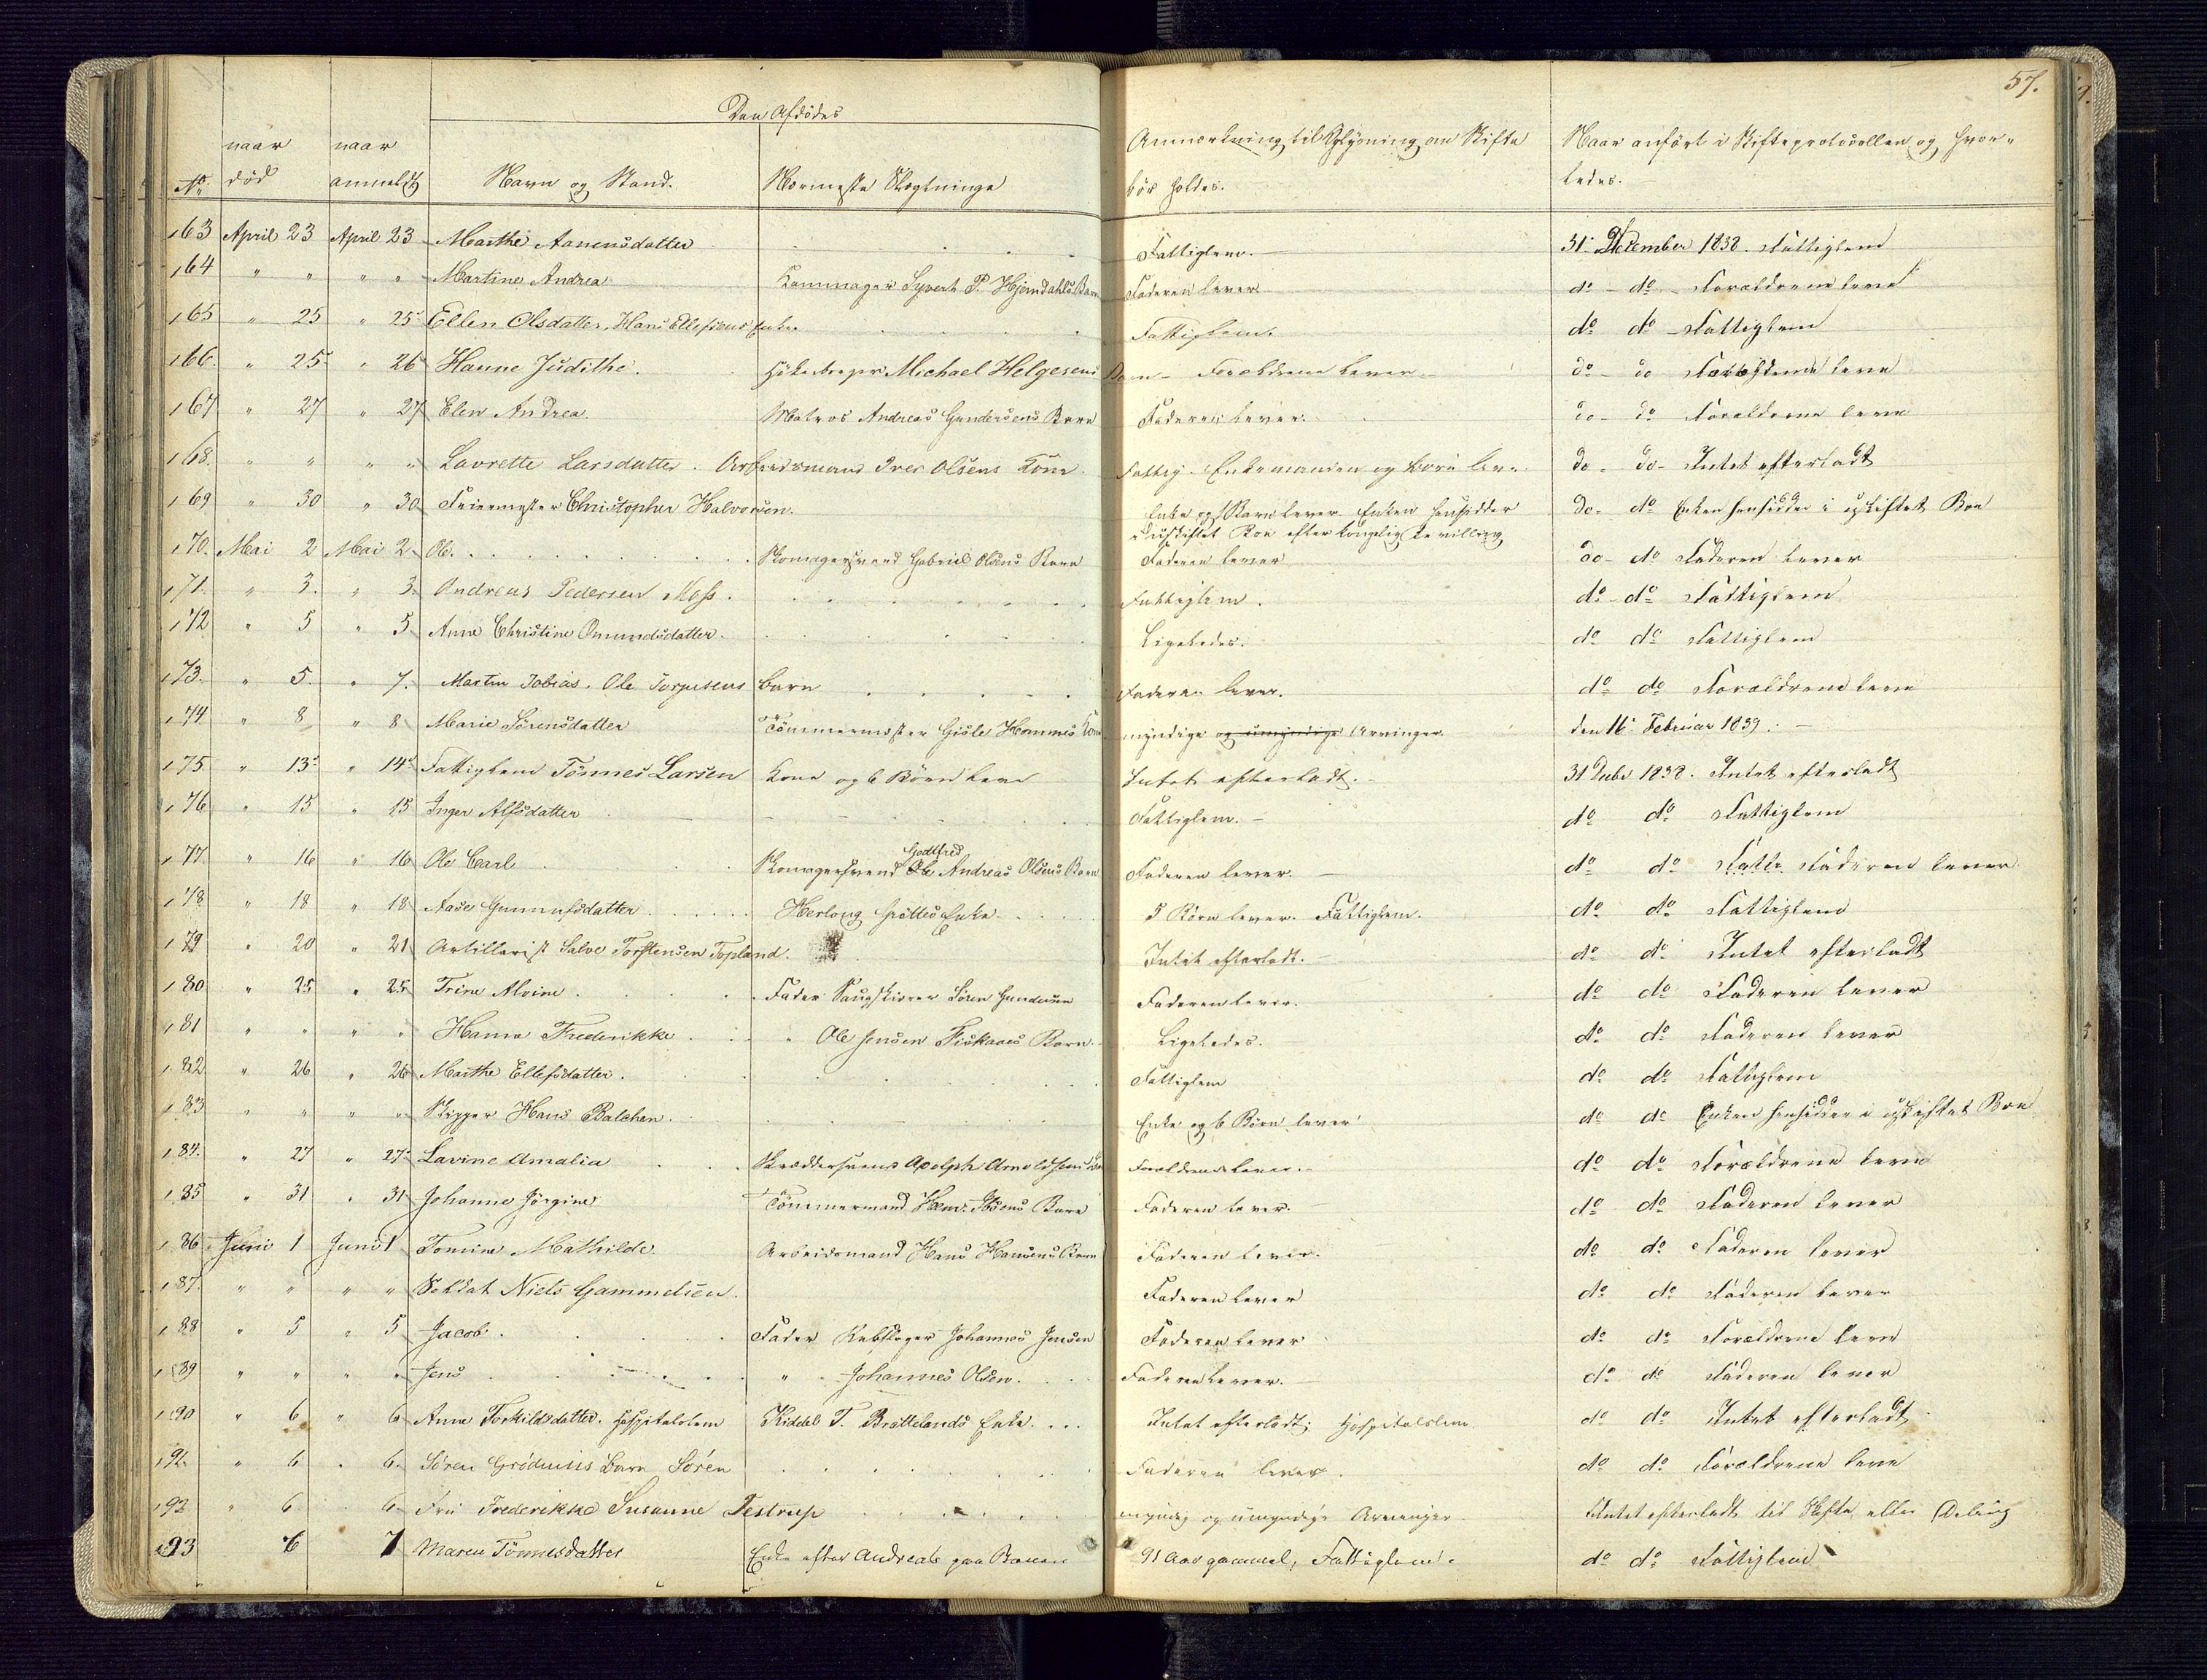 57.
Den Afdødes
No. naar død naar anmeldt Navn og Stand. Nærmeste Slægtninge Anmærkning til Oplysning om Skifte bør holdes. Naar anført i Skifteprotocollen og hvorledes.
163 April 23 April 23 Marthe Aanensdatter Fattiglem. 31. December 1838. Fattiglem
164 " " " " Martine Andrea Kammager Syvert P. Hjemdahls Barn Faderen lever do do Forældrene leve
165 " 25 " 25 Ellen Olsdatter, Hans Ellefsens Enke. Fattiglem. do do Fattiglem
166. " 25 " 26 Hanne Judithe. Michael Helgesens Barn - Forældrene lever. do do Forældrene leve
167 " 27 " 27 Elen Andrea. Matros Andreas Gundersens Barn Faderen lever. do do Forældrene leve
168. " " " " Lavrette Larsdatter. Arbeidsmand Iver Olsens Kone. Fattig. Enkemanden og børn leve do do Intet efterladt
169 " 30 " 30 Feiermester Christopher Halvorsen. Enke og Barn lever. Enken hensidder i uskiftet Boe efter kongelig bevilling do do Enken hensidder i uskiftet Boe
170. Mai 2 Mai 2 Ole. Skomagersvend Gabriel Olsens Barn Faderen lever do do Faderen lever
171. " 3. " 3. Andreas Pedersen Moss. Fattiglem. do do Fattiglem
172 " 5 " 5 Anne Christine Omundsdatter. Ligeledes. do do Fattiglem
173. " 5. " 7. Martin Tobias. Ole Torgusens barn Faderen lever. do do Forældrene leve
174 " 8 " 8 Marie Sörensdatter Tömmermester Gisle Hommes Kone myndige og umyndige Arvinger. den 16. Februar 1839.
175. " 13 " 14 Fattiglem Tönnes Larsen Kone og 6 Börn leve Intet efterladt. 31 Decbr 1838. Intet efterladt
176 " 15 " 15 Inger Alfsdatter Fattiglem. do do Fattiglem
177 " 16 " 16 Ole Carl Skomagersvend Ole Godtfred Andreas Olsens Barn Faderen lever. do do Faderen lever
178 " 18 " 18 Aase Gunnufsdatter Enke. 5 Börn lever. Fattiglem. do do Fattiglem
179 " 20 " 21 Artillerist Salve Torstensen Topland. Intet efterladt. do do Intet efterladt
180 " 25 " 25 Trine Alvine. Fader Sören Gundersen Faderen lever. do do Faderen lever
181 " " " " Hanna Frederikke " Ole Jensen Fiskaaes Barn. Ligeledes. do do Faderen lever
182 " 26 " 26 Marthe Ellefsdatter. Fattiglem do do Fattiglem
183 " " " " Skipper Hans Balchen. Enke og 6 Börn lever do do Enken hensidder i uskiftet Boe
184. " 27 " 27 Lavine Amalia Skræddersvend Adolph Arnoldsens Barn Forældrene lever. do do Forældrene leve
185 " 31 " 31 Johanne Jörgine Tömmermand Barn Faderen lever. do do Faderen lever
186 Juni 1 Juni 1 Tomine Mathilde. Arbeidsmand Hans Hansens Barn Faderen lever. do do Faderen lever
187. " " " " Soldat Niels Gammelsen. Faderen lever do do Faderen lever
188 " 5 " 5 Jacob. Fader Rebslager Johannes Jensen Faderen lever do do Forældrene leve
189 " " " " Jens " Johannes Olsen. Faderen lever. do do Faderen lever
190 " 6 " 6 Anne Torkildsdatter. Hospitalslem Kiddel T. Brøttelands Enke. Intet efterladt; Hospitalslem. do do Intet efterladt
191. " 6 " 6. Sören barn Sören Faderen lever. do do Forældrene leve
192 " 6 " 6 Fru Frederikke Susanne Testrup myndig og umyndige Arvinger. Intet efterladt til Skifte eller Deling
193 6 7 Maren Tönnesdatter Enke efter Andreas paa Banen 91 Aar gammel, Fattiglem. do do Fattiglem